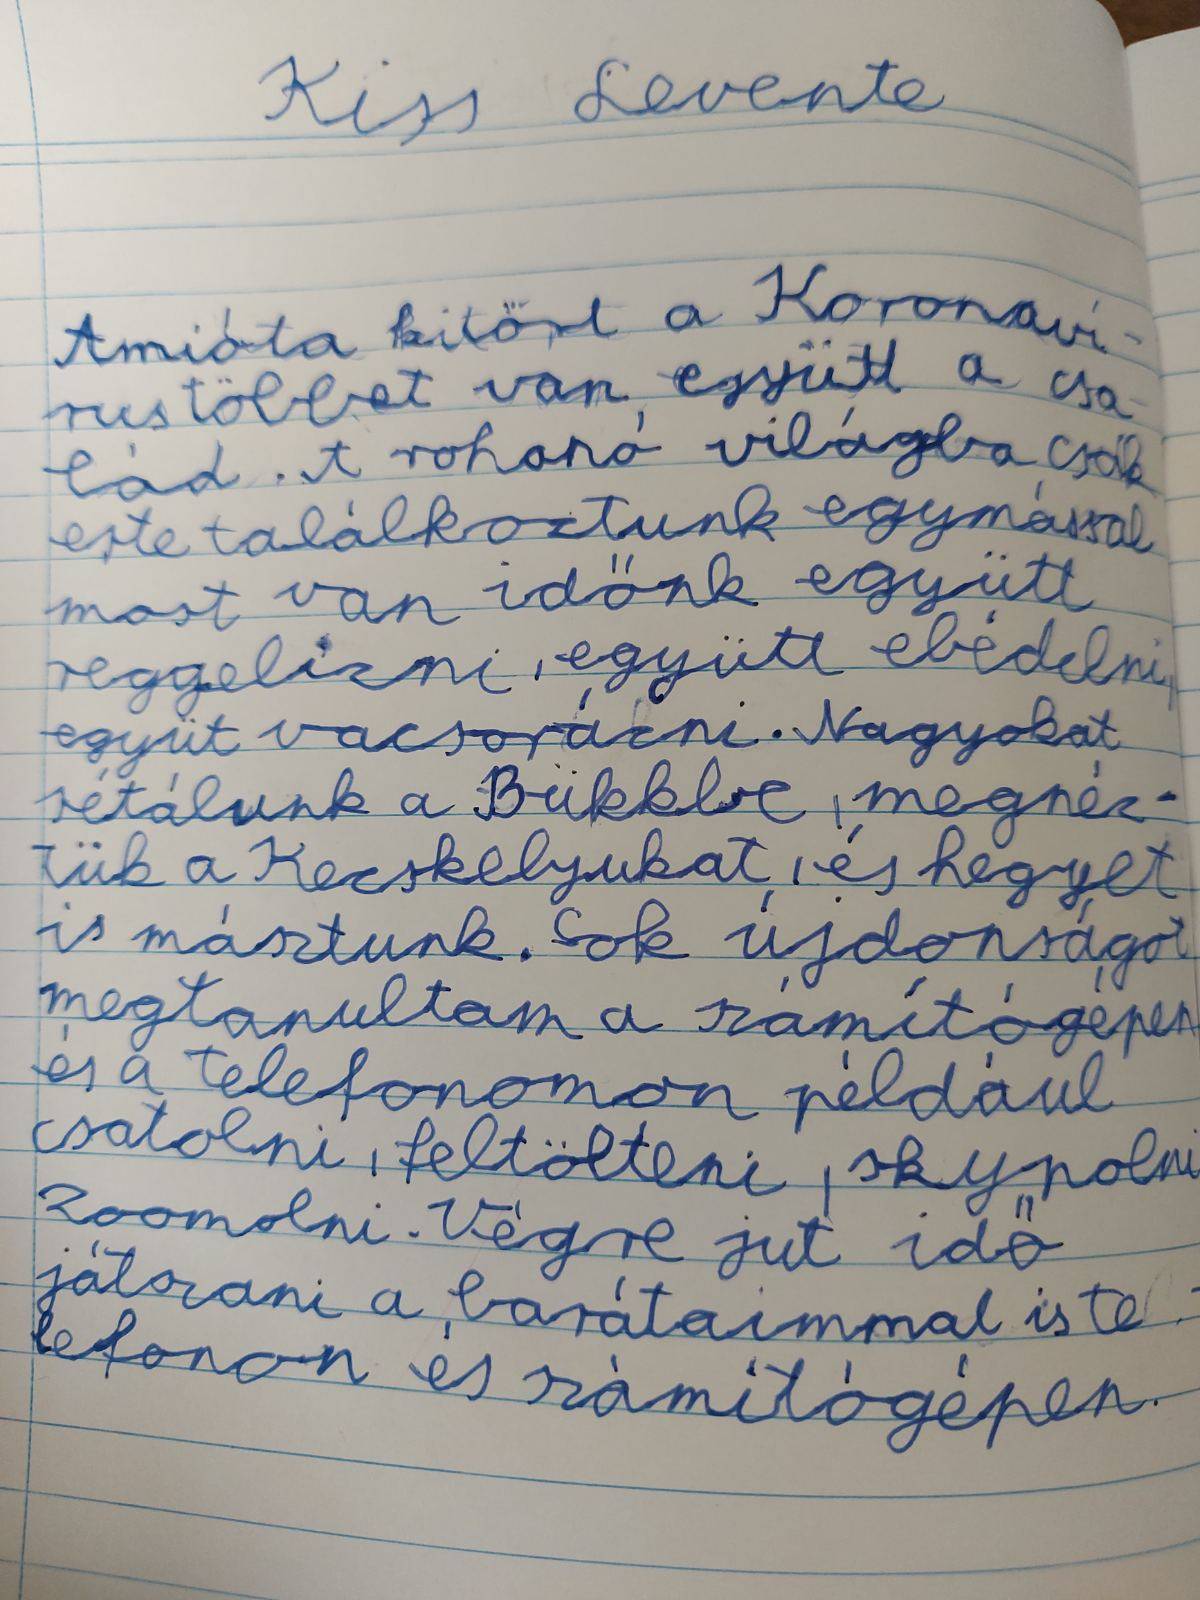 Kiss Levente
Amióta kitört a Koronaví-
rus többet van együtt a csa-
lád. A rohanó világba csak
este találkoztunk egymással
most van időnk együtt
reggelizni, együtt ebédelni,
együt vacsorázni. Nagyokat
sétálunk a Bükkbe, megnéz-
tük a Kecskelyukat, és hegyet
is másztunk. Sok újdonságot
megtanultam a számítógépen
és a telefonomon például
csatolni, feltölteni, skypolni
Zoomolni. Végre jut idő
játszani a barátaimmal is te-
lefonon és számítógépen.